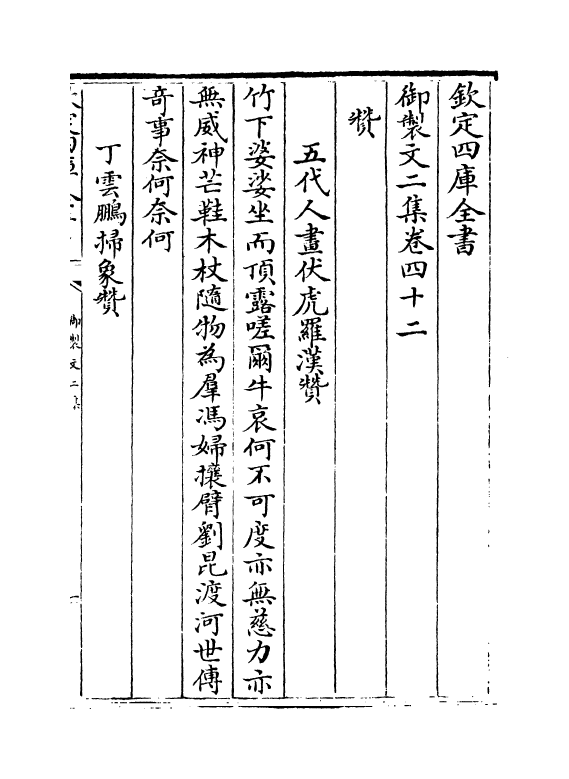 欽定四庫全書
御製文二集卷四十二
贊
五代人畫伏虎羅漢贊
竹下婆娑坐而頂露嗟爾牛哀何不可度亦無慈力亦
無威神芒鞋木杖隨物為羣馮婦攘臂劉昆渡河世傳
竒事奈何奈何
丁雲鵬掃象贊
御製文二集